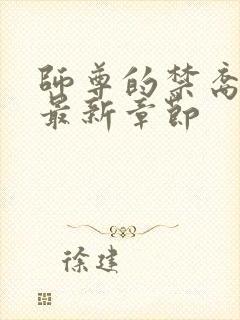 师尊的禁脔
最新章节
徐建